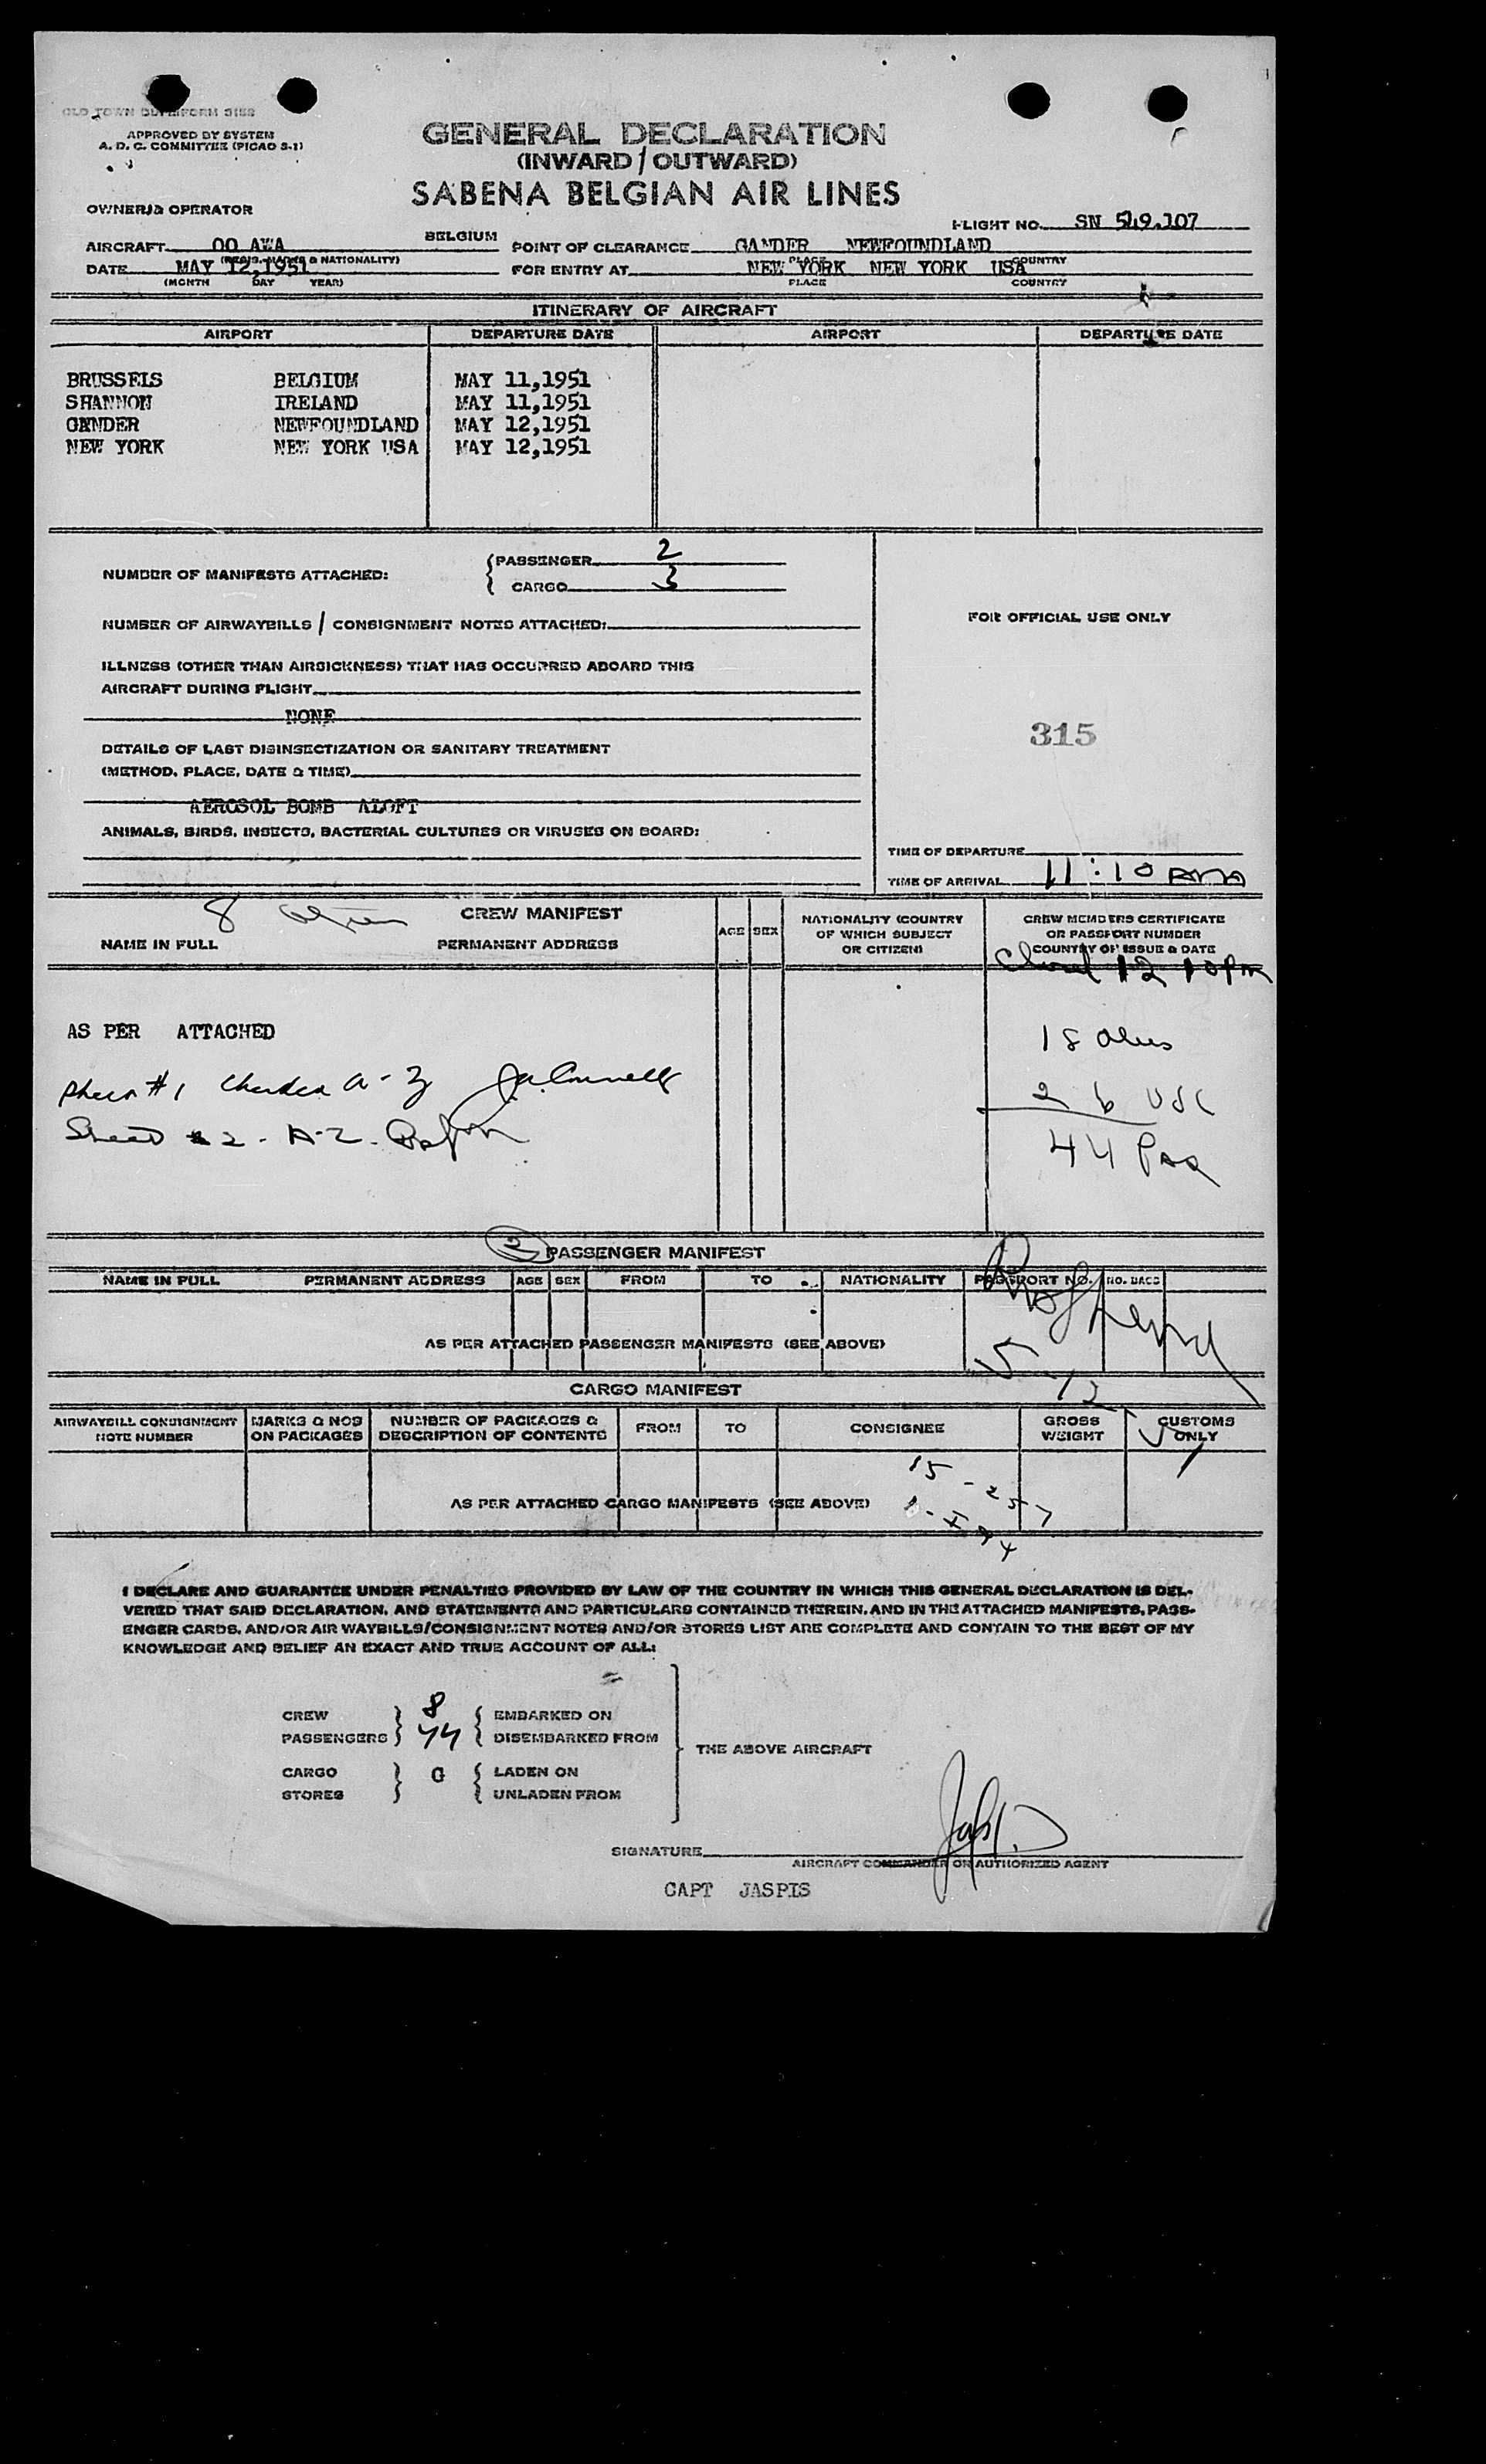 OLD TOWN DUPLIFORM 3158
APPROVED BY SYSTEM
A. D. C. COMMITTEE (PICAO S-1)
GENERAL DECLARATION
(INWARD / OUTWARD)
SABENA BELGIAN AIR LINES
OWNER & OPERATOR
FLIGHT NO. SN 549.107
AIRCRAFT OO AWA BELGIUM POINT OF CLEARANCE GANDER NEWFOUNDLAND
(REGIS. MARKS & NATIONALITY) PLACE COUNTRY
DATE MAY 12,1951 FOR ENTRY AT NEW YORK NEW YORK USA
(MONTH DAY YEAR) PLACE COUNTRY
ITINERARY OF AIRCRAFT
AIRPORT DEPARTURE DATE AIRPORT DEPARTURE DATE
BRUSSELS BELGIUM MAY 11,1951
SHANNON IRELAND MAY 11,1951
GANDER NEWFOUNDLAND MAY 12,1951
NEW YORK NEW YORK USA MAY 12,1951
NUMBER OF MANIFESTS ATTACHED: PASSENGER 2
CARGO 3
NUMBER OF AIRWAYBILLS / CONSIGNMENT NOTES ATTACHED:
FOR OFFICIAL USE ONLY
ILLNESS (OTHER THAN AIRSICKNESS) THAT HAS OCCURRED ABOARD THIS
AIRCRAFT DURING FLIGHT
NONE
315
DETAILS OF LAST DISINSECTIZATION OR SANITARY TREATMENT
(METHOD, PLACE, DATE & TIME)
AEROSOL BOMB ALOFT
ANIMALS, BIRDS, INSECTS, BACTERIAL CULTURES OR VIRUSES ON BOARD:
TIME OF DEPARTURE
TIME OF ARRIVAL 11:10 AM
8
CREW MANIFEST
NAME IN FULL PERMANENT ADDRESS AGE SEX NATIONALITY (COUNTRY
OF WHICH SUBJECT
OR CITIZEN)
CREW MEMBERS CERTIFICATE
OR PASSPORT NUMBER
COUNTRY OF ISSUE & DATE
12 10 pm
AS PER ATTACHED
18
Sheet #1 A-Z
26 USC
Sheet #2 - A-Z.
44 Pax
2 PASSENGER MANIFEST
NAME IN FULL PERMANENT ADDRESS AGE SEX FROM TO NATIONALITY PASSPORT NO. NO. BAGS
AS PER ATTACHED PASSENGER MANIFESTS (SEE ABOVE)
5/12
CARGO MANIFEST
AIRWAYBILL CONSIGNMENT
NOTE NUMBER
MARKS & NOS
ON PACKAGES
NUMBER OF PACKAGES &
DESCRIPTION OF CONTENTS
FROM TO CONSIGNEE
GROSS
WEIGHT
CUSTOMS
ONLY
15 - 257
AS PER ATTACHED CARGO MANIFESTS (SEE ABOVE)
I DECLARE AND GUARANTEE UNDER PENALTIES PROVIDED BY LAW OF THE COUNTRY IN WHICH THIS GENERAL DECLARATION IS DEL-
VERED THAT SAID DECLARATION, AND STATEMENTS AND PARTICULARS CONTAINED THEREIN, AND IN THE ATTACHED MANIFESTS, PASS-
ENGER CARDS, AND/OR AIR WAYBILLS/CONSIGNMENT NOTES AND/OR STORES LIST ARE COMPLETE AND CONTAIN TO THE BEST OF MY
KNOWLEDGE AND BELIEF AN EXACT AND TRUE ACCOUNT OF ALL:
CREW 8 EMBARKED ON
PASSENGERS 44 DISEMBARKED FROM
THE ABOVE AIRCRAFT
CARGO 0 LADEN ON
STORES UNLADEN FROM
SIGNATURE
AIRCRAFT COMMANDER OR AUTHORIZED AGENT
CAPT JASPIS